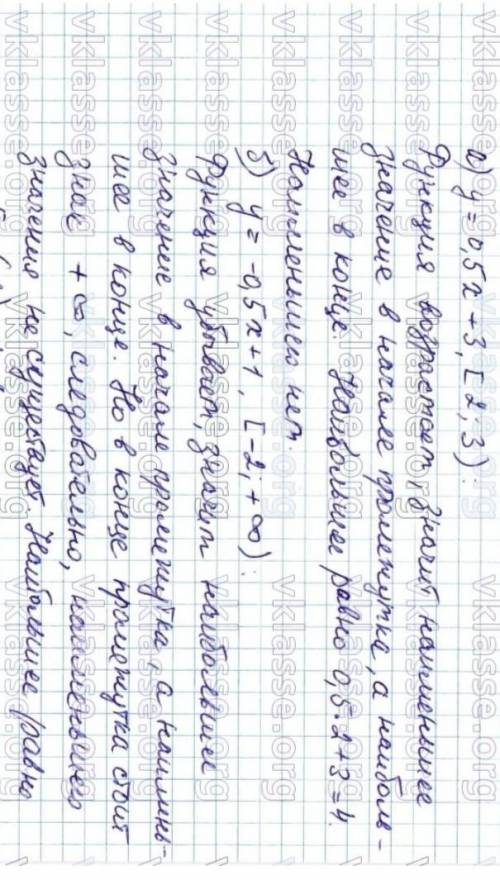 а) y = 0,5x + 3, [2; 3):
Функция возрастает, значит наименьшее
значение в начале промежутка, а наиболь-
шее в конце. Наибольшее равно 0,5·2+3=4.
Наименьшего нет.
б) y = -0,5x + 1, [-2; +∞):
Функция убывает, значит наибольшее
значение в начале промежутка, а наимень-
шее в конце. Но в конце промежутка стоит
знак +∞, следовательно, наименьшего
значения не существует. Наибольшее равно
vklasse.org